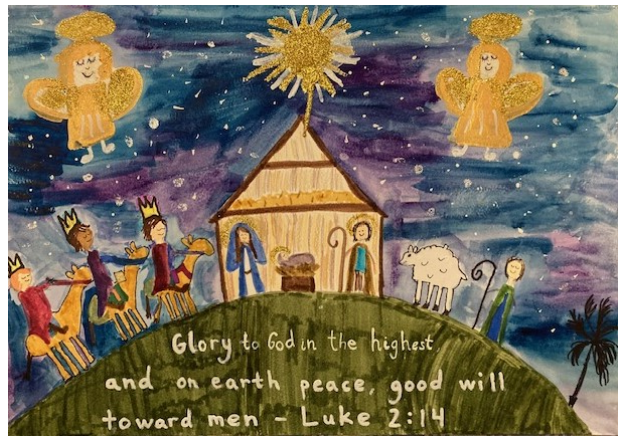 Glory to God in the highest
and on earth peace, good will
toward men - Luke 2:14